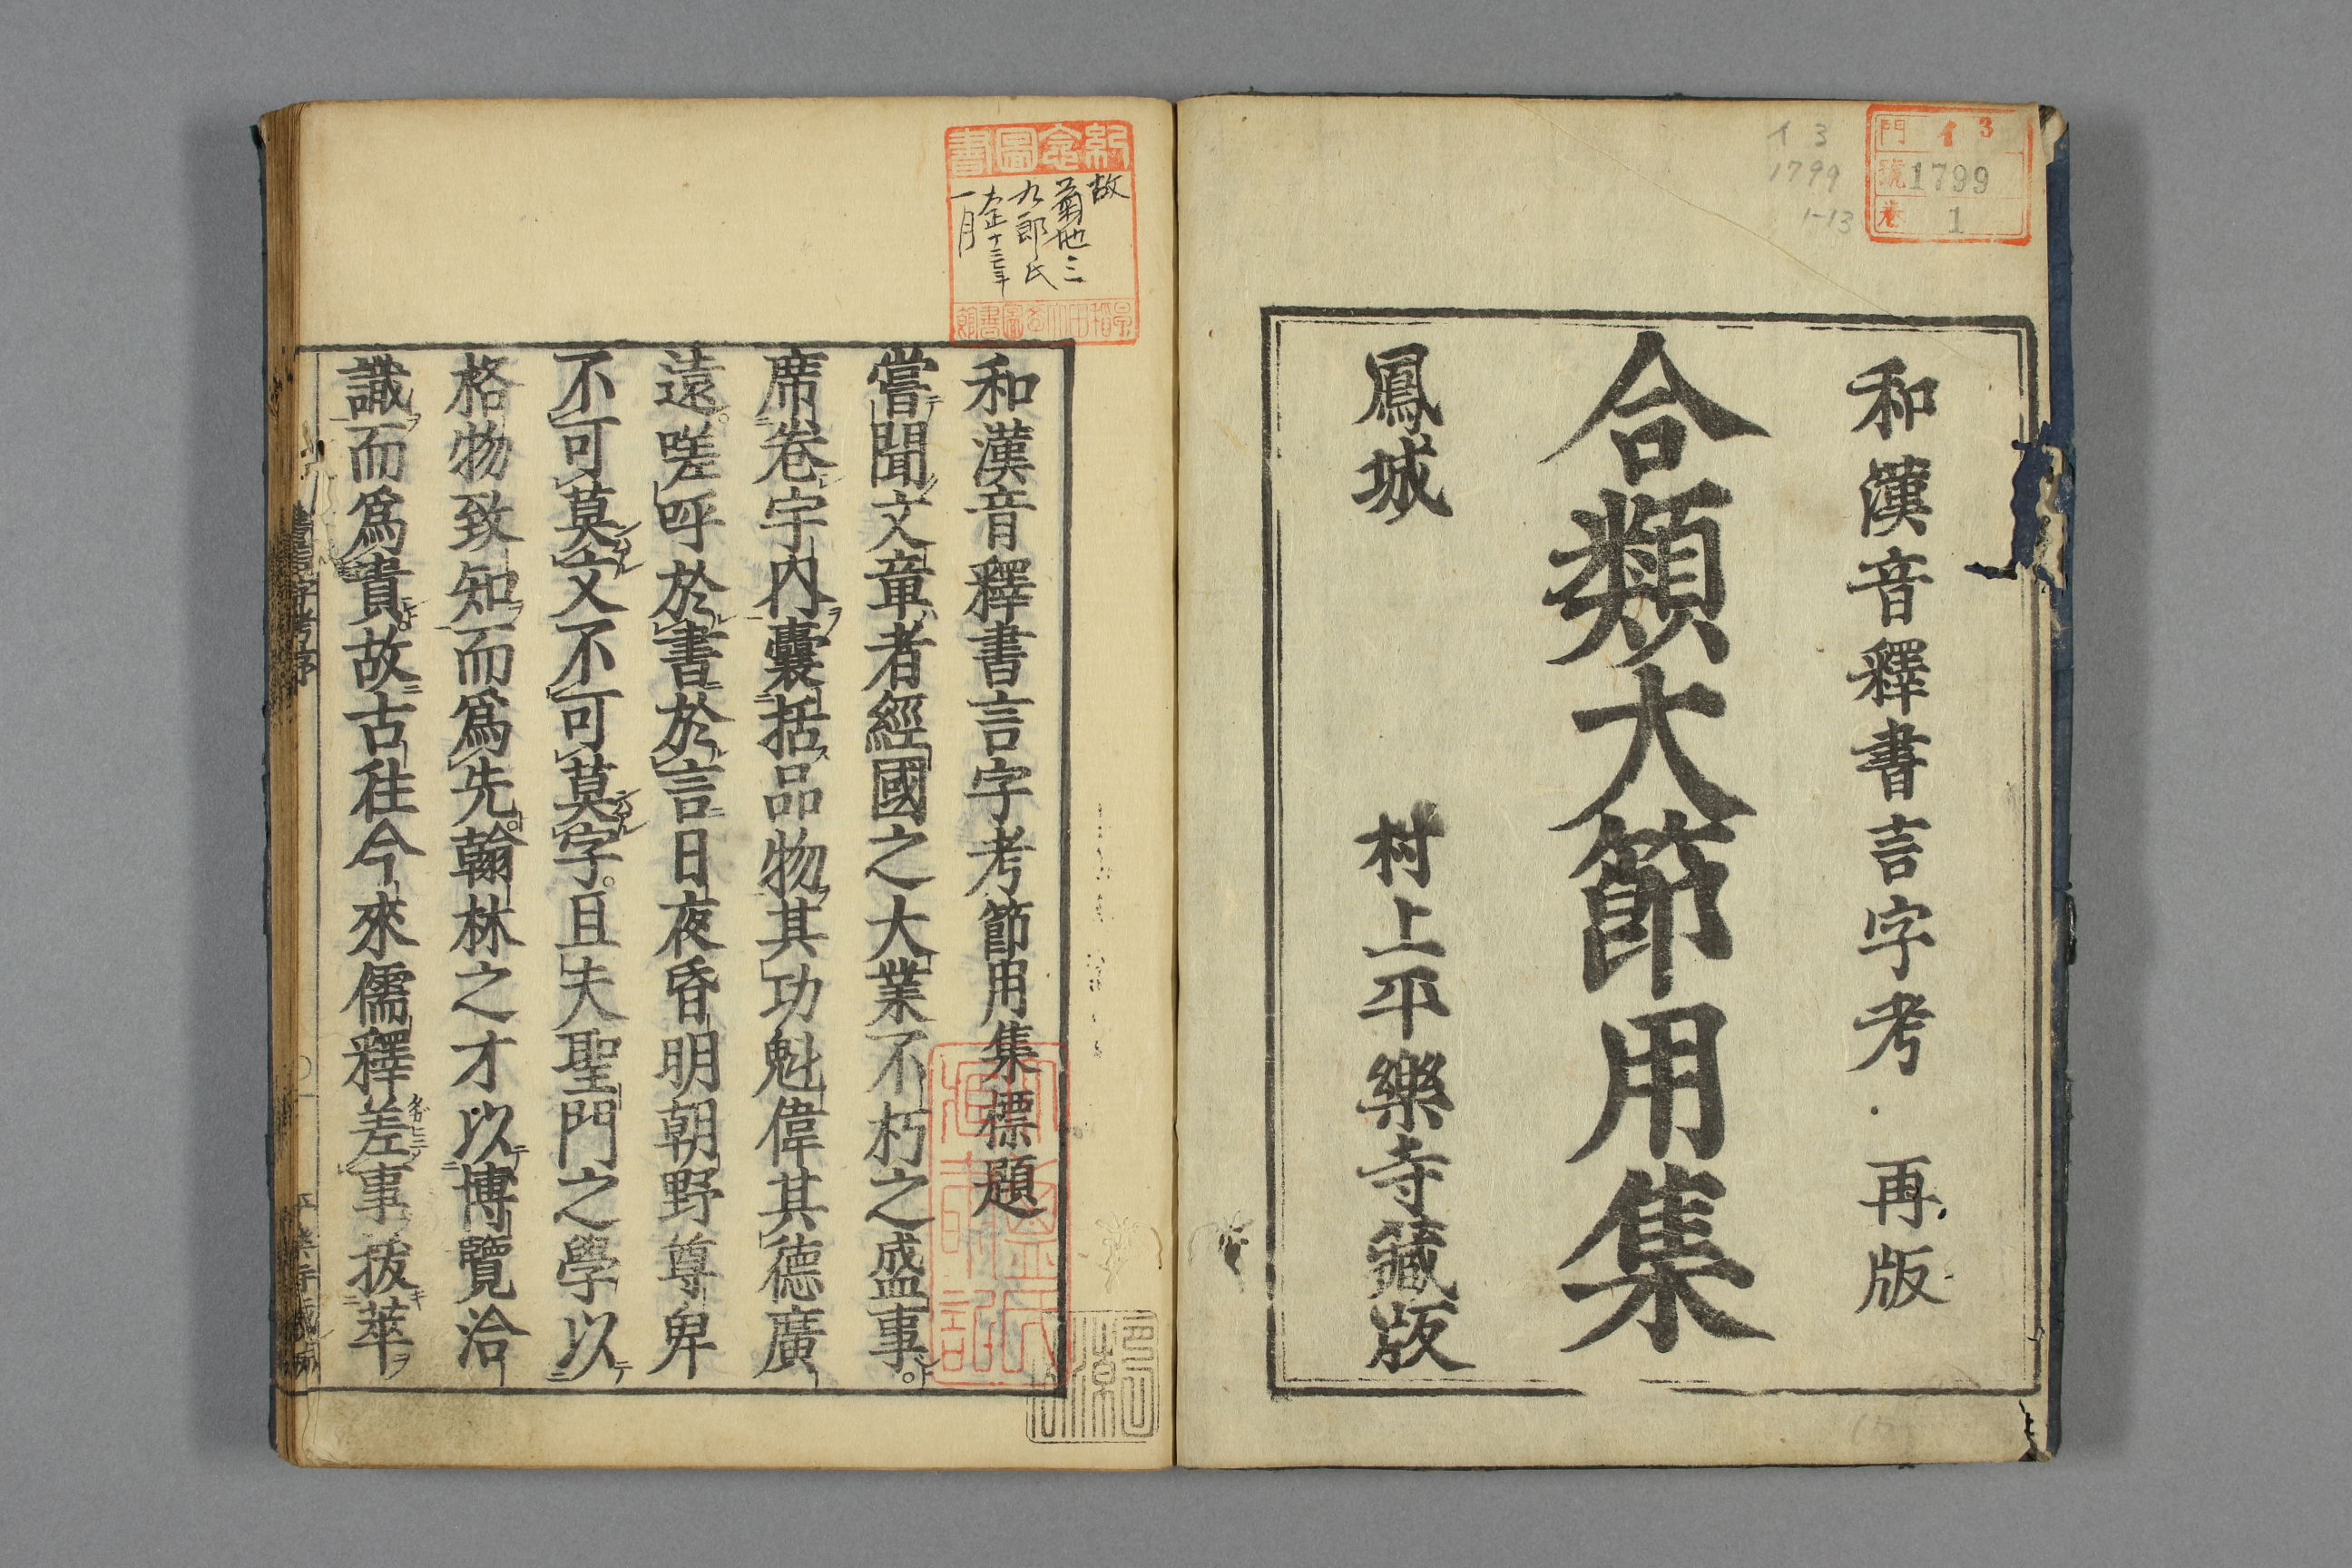 門 イ 3
號 1799
卷 1
イ 3
1799
1-13
和漢音釋書言字考 再版
合類大節用集
鳳城 村上平樂寺藏版
紀念圖書
故
菊地三
九郎氏
大正十三年
一月
和漢音釋書言字考節用集標題
嘗聞文章者經國之大業不朽之盛事
席卷宇內囊括品物其功魁偉其德廣
遠嗟呼於書於言日夜昏明朝野尊卑
不可莫文不可莫字且夫聖門之學以
格物致知而爲先翰林之才以博覽洽
識而爲貴故古往今來儒釋差事拔萃